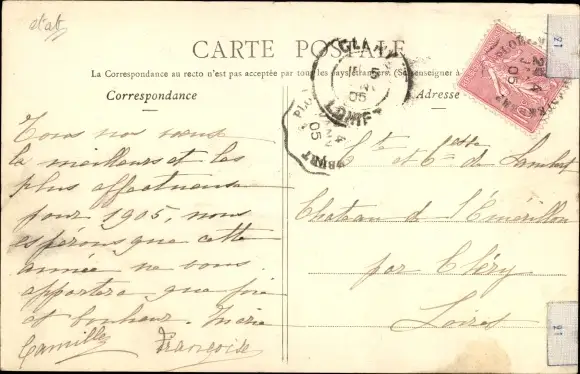 CARTE POSTALE
La Correspondance au recto n'est pas acceptée par tous les pays étrangers. (Se renseigner à
Correspondance
Adresse
Tous nos vœux
les meilleurs et les
plus affectueux
pour 1905, nous
espérons que cette
année ne vous
apportera que joie
et bonheur.
Camille Françoise
Cte et Ctesse de Lambert
Chateau de l'Emérillon
par Cléry
Loiret
CLERY
LOIRET
05
4
05
4
05
21
21